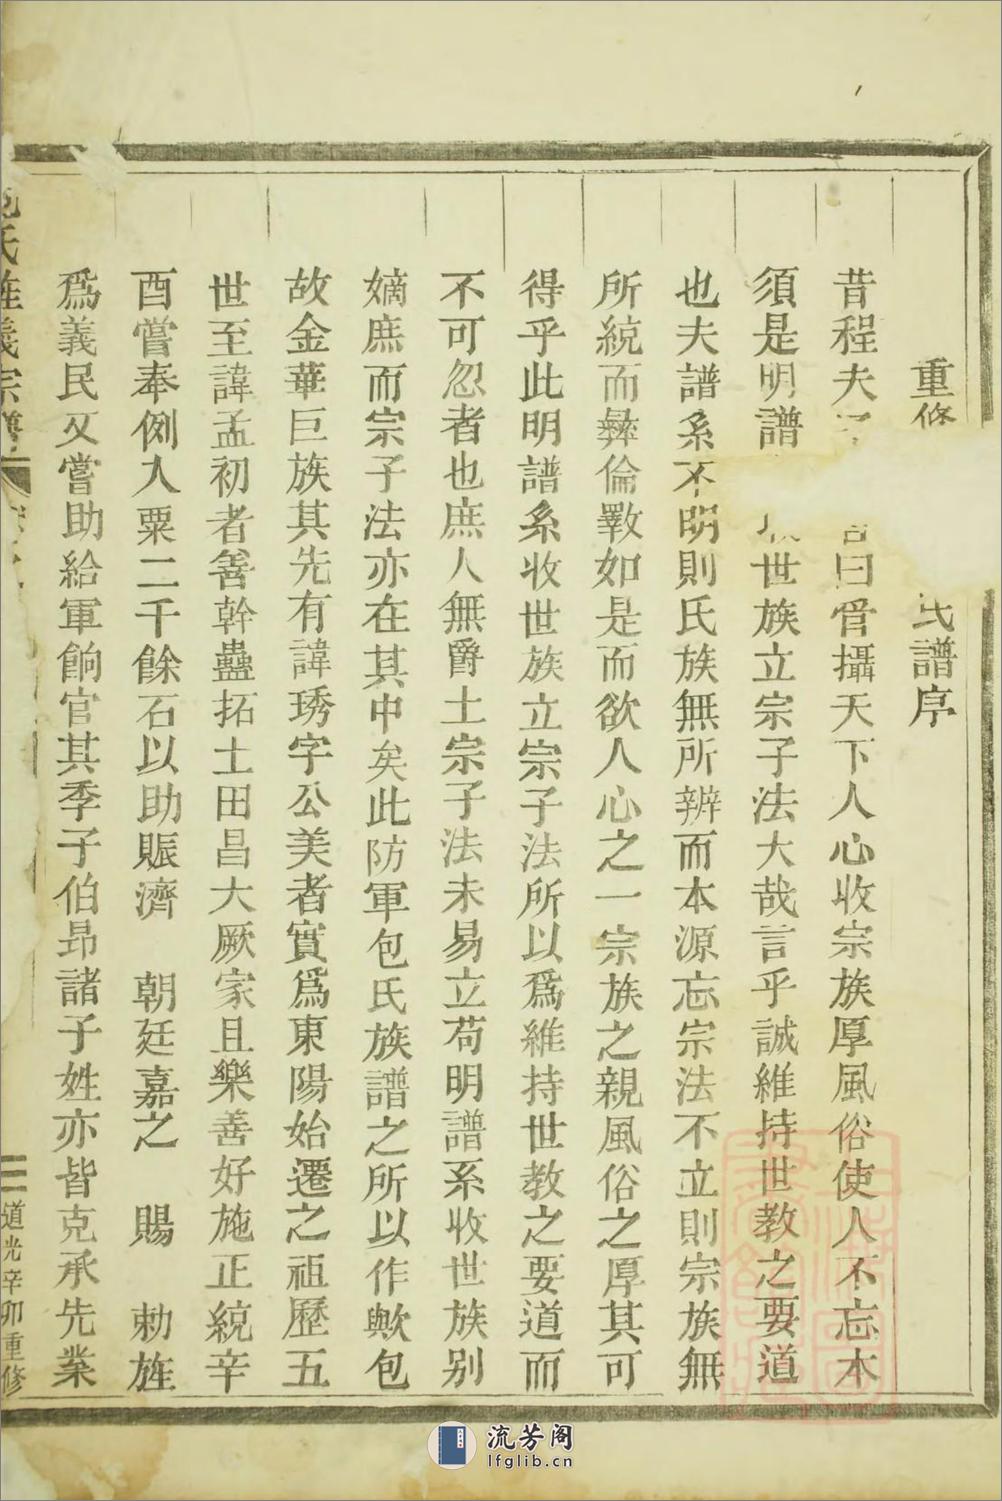 重修氏譜序
昔程夫曰管攝天下人心收宗族厚風俗使人不忘本
須是明譜世族立宗子法大哉言乎誠維持世教之要道
也夫譜系不明則氏族無所辨而本源忘宗法不立則宗族無
所統而彝倫斁如是而欲人心之一宗族之親風俗之厚其可
得乎此明譜系收世族立宗子法所以爲維持世教之要道而
不可忽者也庶人無爵土宗子法未易立苟明譜系收世族别
嫡庶而宗子法亦在其中矣此防軍包氏族譜之所以作歟包
故金華巨族其先有諱琇字公美者實爲東陽始遷之祖歷五
世至諱孟初者善幹蠱拓土田昌大厥家且樂善好施正統辛
酉嘗奉例入粟二千餘石以助賑濟 朝廷嘉之 賜 勅旌
爲義民又嘗助給軍餉官其季子伯昂諸子姓亦皆克承先業
氏旌義宗譜
道光辛卯重修
流芳阁
lfglib.cn